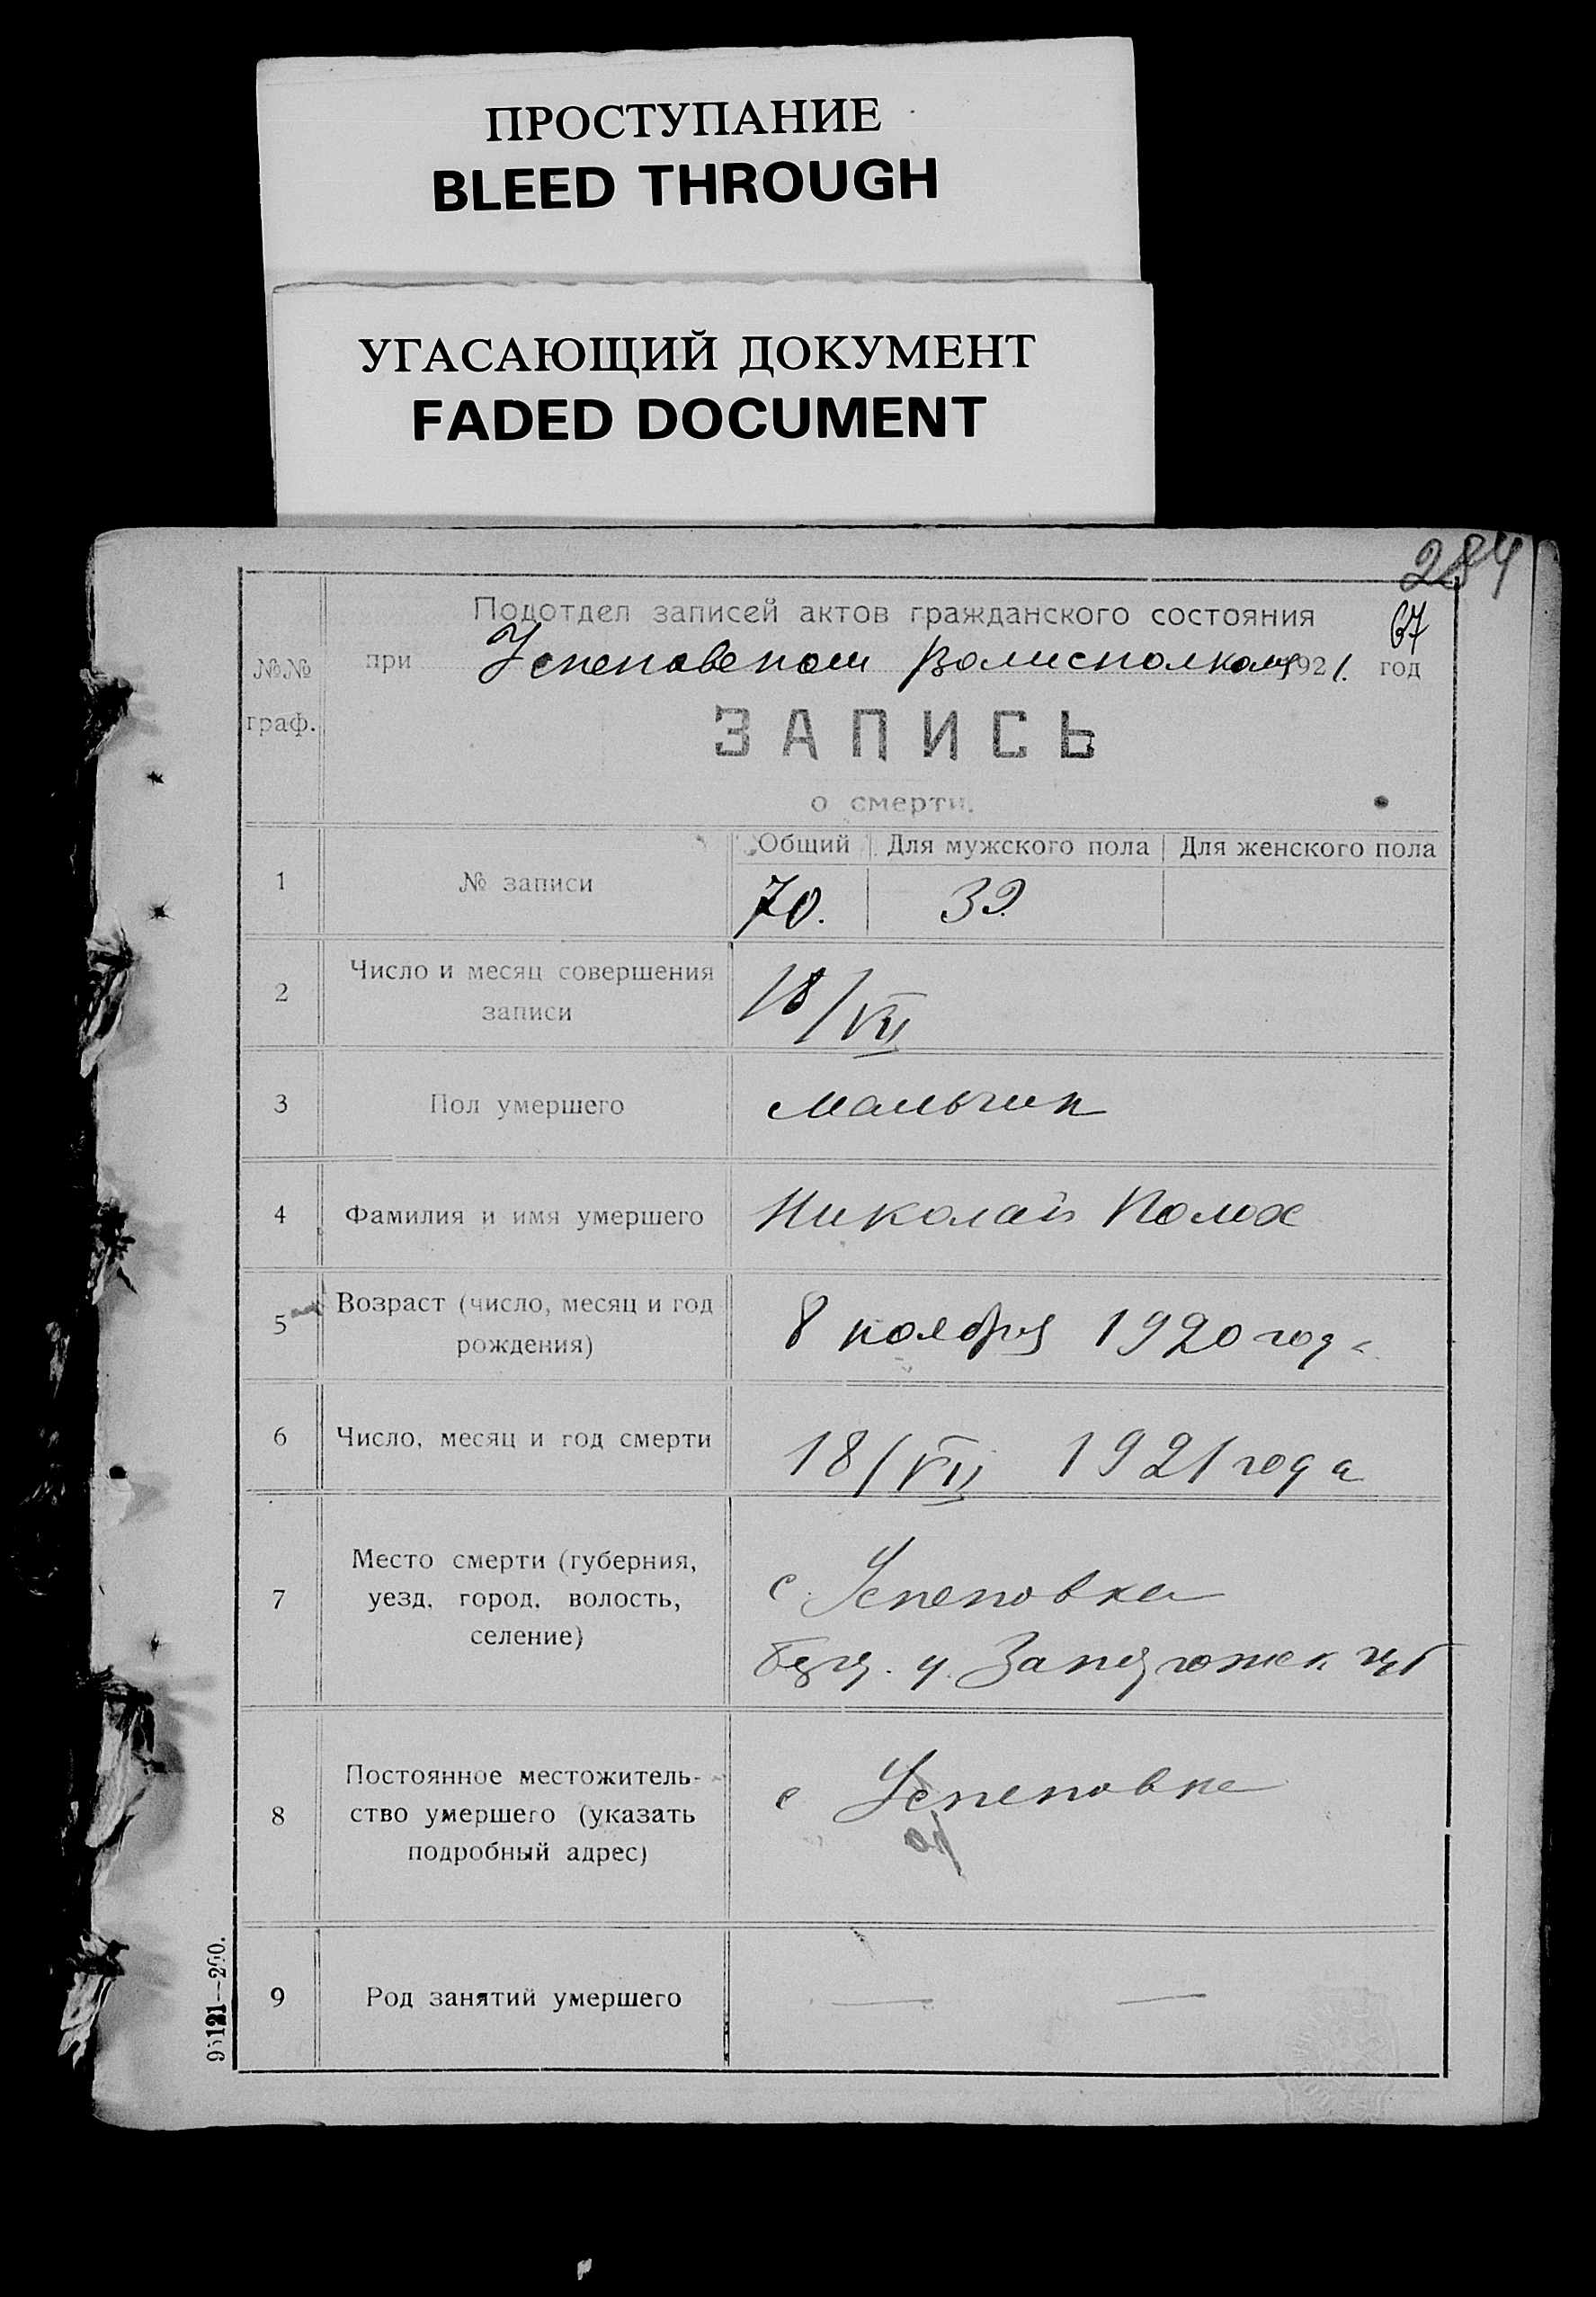 ПРОСТУПАНИЕ
BLEED THROUGH
УГАСАЮЩИЙ ДОКУМЕНТ
FADED DOCUMENT
284
Подотдел записей актов гражданского состояния
67
при Успеновском Волисполкому 1921. год
№№
граф.
ЗАПИСЬ
о смерти.
Общий Для мужского пола Для женского пола
1 № записи 70. 39.
2 Число и месяц совершения
записи 18/VII
3 Пол умершего мальчик
4 Фамилия и имя умершего Николай
5 Возраст (число, месяц и год
рождения) 8 ноября 1920 года
6 Число, месяц и год смерти 18/VII 1921 года
7 Место смерти (губерния,
уезд, город, волость,
селение)
с. Успеновка
у. губ
8 Постоянное местожитель-
ство умершего (указать
подробный адрес)
с Успеновка
9 Род занятий умершего — —